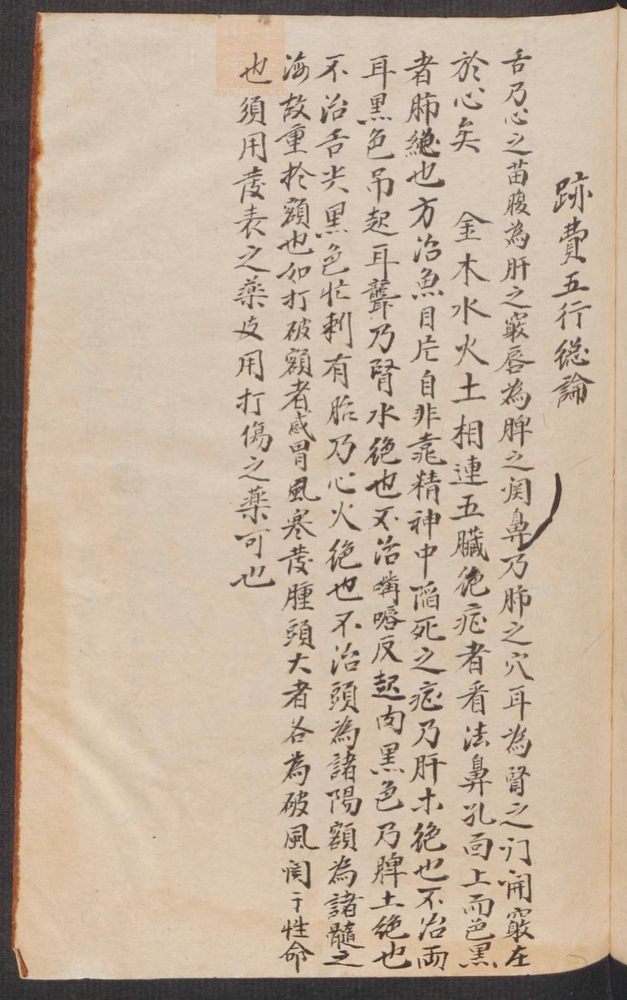 跡費五行總論
舌乃心之苗腹為肝之竅唇為脾之闵鼻乃肺之穴耳為腎之门開竅在
於心矣 金木水火土相連五臟绝症者看法鼻孔向上而色黑
者肺絕也方治魚目定自非靠精神中陷死之症乃肝木绝也不治両
耳黑色吊起耳聾乃腎水绝也不治嘴唇反起肉黑色乃脾土绝也
不治舌尖黑色忙刺有胎乃心火绝也不治頭為諸陽額為諸髓之
海故重於額也如打破額者感冒風寒發腫頭大者名為破風関于性命
也須用發表之藥及用打傷之藥可也